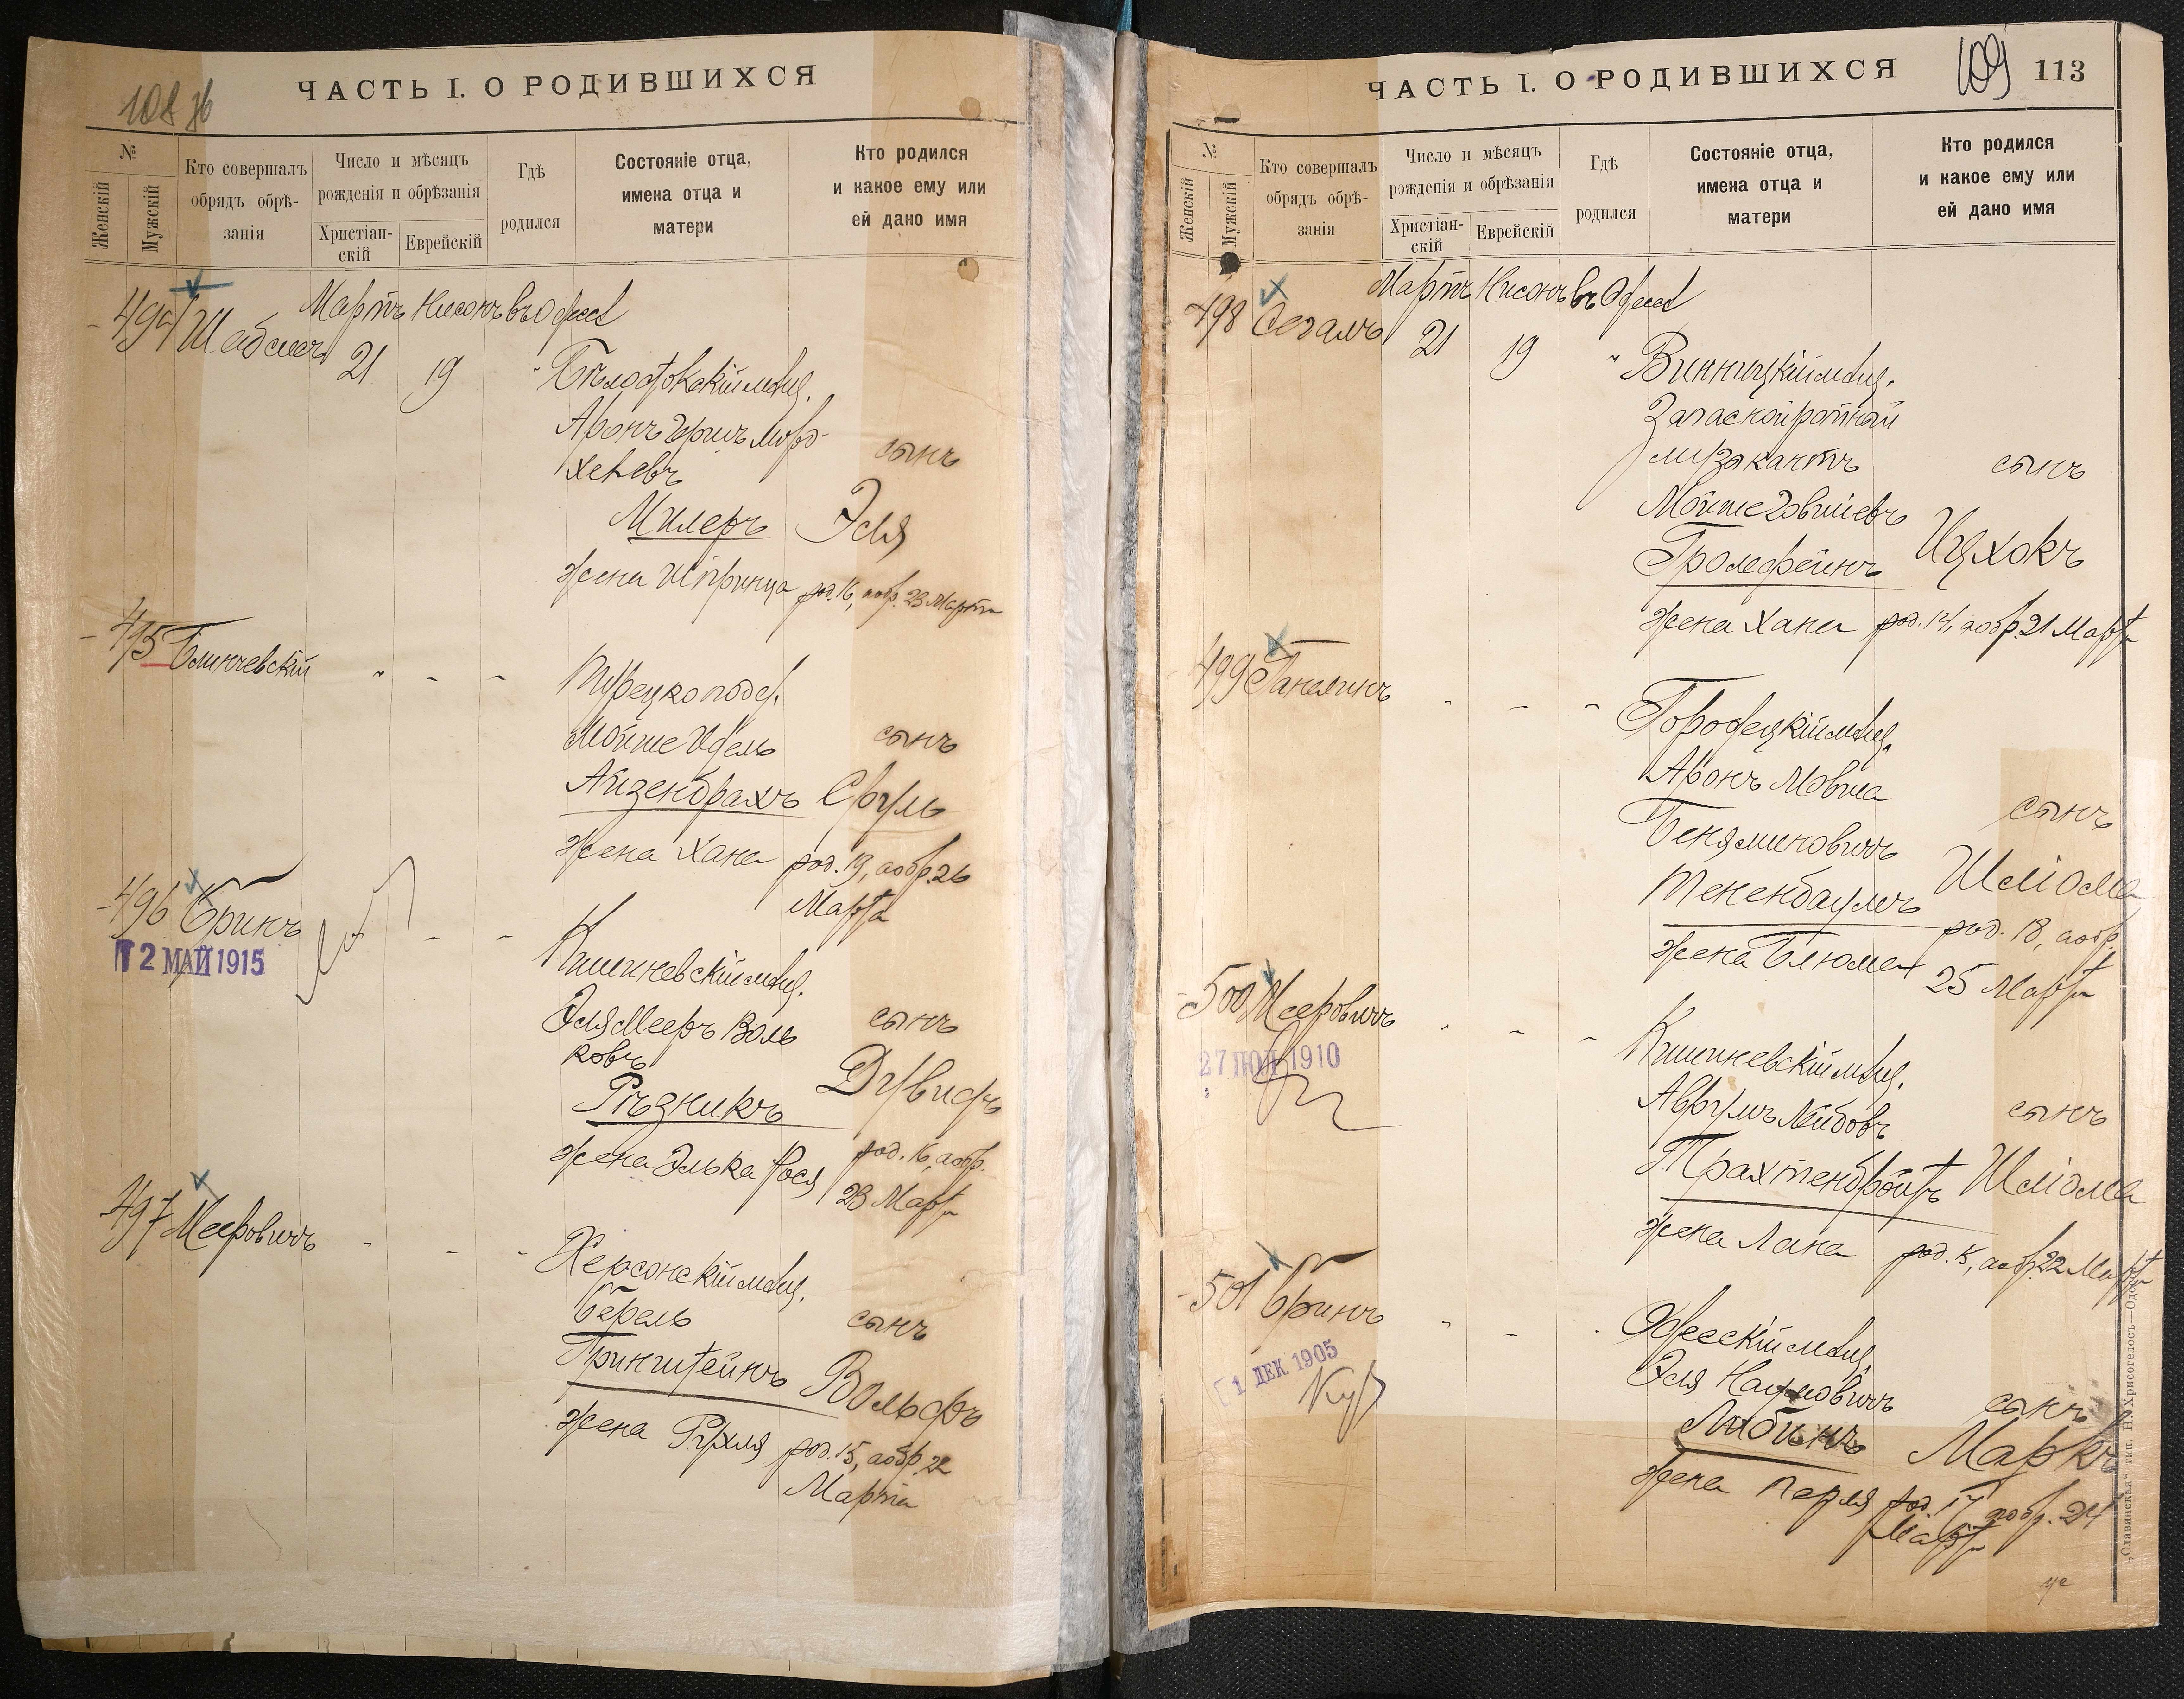 108 об
ЧАСТЬ I. О РОДИВШИХСЯ
№
Женскій
Мужскій
Кто совершалъ
обрядъ обрѣ-
занія
Число и мѣсяцъ
рожденія и обрѣзанія
Христіан-
скій
Еврейскій
Гдѣ
родился
Состояніе отца,
имена отца и
матери
Кто родился
и какое ему или
ей дано имя
Мартъ Нисонъ въ Одессѣ
494
21 19
Бѣлостокскій мѣщ.
Аронъ Гершъ Морд-
хелевъ
сынъ
Милеръ Эля
жена Шпринца род. 16, а обр. 23 Марта
495 Блинчевскій " - -
Турецко подд.
Мойше Идель сынъ
Айзенбрахъ Сруль
жена Хана род. 19, а обр. 26
Марта
496 Бринъ - -
12 МАЙ 1915
Кишиневскій мѣщ.
Эля Мееръ Воль
ковъ
сынъ
Рѣзникъ Дувидъ
жена Элька Рося род. 16, а обр.
23 Марта
497 Мееровичъ - - -
Херсонскій мѣщ.
Берель сынъ
Гринштейнъ Вольфъ
жена Рухля род. 15, а обр. 22
Марта
ЧАСТЬ I. О РОДИВШИХСЯ
109 113
№
Женскій
Мужскій
Кто совершалъ
обрядъ обрѣ-
занія
Число и мѣсяцъ
рожденія и обрѣзанія
Христіан-
скій
Еврейскій
Гдѣ
родился
Состояніе отца,
имена отца и
матери
Кто родился
и какое ему или
ей дано имя
Мартъ Нисонъ въ Одессѣ
498 Сегалъ 21 19 "
Винницкій мѣщ.
Запасной ротный
музыкантъ сынъ
Мойше Говшіевъ
Громфейнъ Ицхокъ
жена Хана род. 14, а обр. 21 Марта
499 Ганелинъ - - -
Городецкій мѣщ.
Аронъ Мовша сынъ
Беняминовичъ
Тененбаумъ Шліома
род. 18, а обр.
жена Блюма 25 Марта
500 Мееровичъ - - -
27 1910
Кишиневскій мѣщ.
Аврумъ Лейбовъ сынъ
Трахтенбройтъ Шліома
жена Лана род. 15, а обр. 22 Марта
501 Бринъ - - -
1 ДЕК 1905
Одесскій мѣщ.
Эля Наумовичъ сынъ
Либинъ Маркъ
жена Перля род. 17 а обр. 24
Марта
„Славянская“ тип. Н. Хрисогелосъ—Одесса